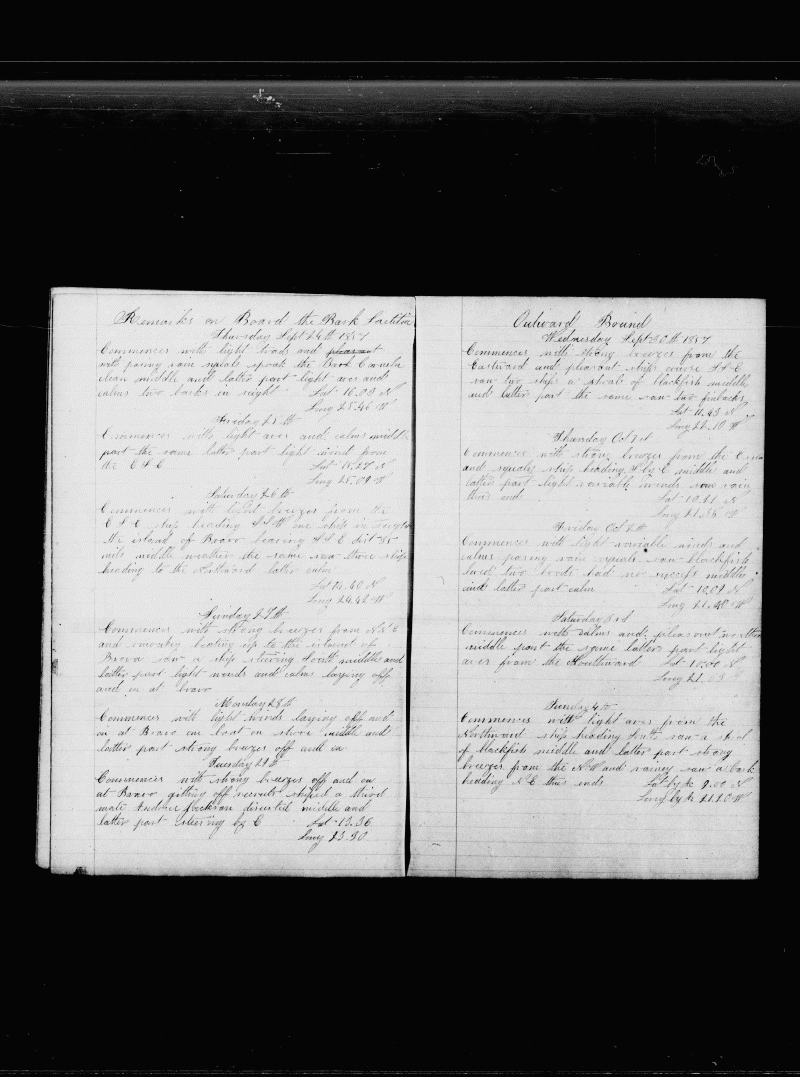 Remarks on Board the Bark
Thursday Sept 24th 1857
Commences with light trads and pleasant
with passing rain squals spoak the Bark
clean middle and latter part light ares and
calms two barks in sight Lat 16.03 N
Long 25.46 W
Friday 25th
Commences with light ares and calms middle
part the same latter part light wind from
the E S E Lat 15.27 N
Long 25.09 W
Saturday 26th
Commences with light breezes from the
E S E ship heading S S W one
the island of Bravo bearing S S E dist 35
mils middle weather the same saw three ships
heading to the latter calm
Lat 14.40 N
Long 24.42 W
Sunday 27th
Commences with strong breezes from N N E
and smokey beating up to the island of
Brava saw a ship stering South middle and
latter part light winds and calms laying off
and on at bravo
Monday 28th
Commences with light winds laying off and
on at Bravo one boat on shore middle and
latter part strong breezes off and on
Tuesday 29th
Commences with strong breezes off and on
at Bravo gitting off recruits shiped a third
mate Andrew Jackson diserted middle and
latter part stering by E Lat 13.36
Long 23.30
Outward Bound
Wednesday Sept 30th 1857
Commences with strong breezes from the
Eastward and pleasant ship course S S E
saw two ships a shoal of blackfish middle
and latter part the same saw two finbacks
Lat 11.43 N
Long 22.10 W
Thursday Oct 1st
Commences with strong breezes from the
and squaly ship heading S by E middle and
latter part light variable winds some rainy
thus ends Lat 10.21 N
Long 21.56 W
Friday Oct 2th
Commences with light variable winds and
calms passing rain squals saw blackfish
lored two boats had no success middle
and latter part calm Lat 10.02 N
Long 21.48 W
Saturday 3rd
Commences with calms and pleasant weather
middle part the same latter part light
ares from the Southward Lat 10.00 N
Long 21.03
Sunday 4th
Commences with light ares from the
Northward ship heading South saw a shoal
of blackfish middle and latter part strong
breezes from the N W and rainey saw a bark
heading N E thus ends Lat by Ac 9.00 N
Long by Ac 21.20 W